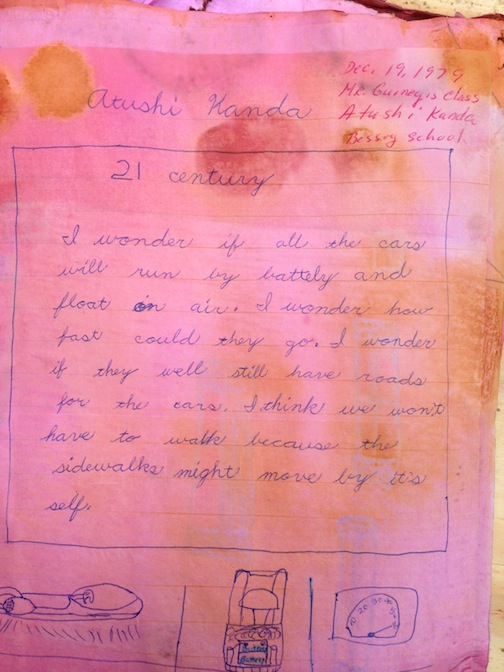 Dec. 19, 1979
Mr. Guiney's Class
Atushi Kanda
Bessey School.
Atushi Kanda
21 century
I wonder if all the cars
will run by battely and
float on air. I wonder how
fast could they go. I wonder
if they well still have roads
for the cars. I think we won't
have to walk because the
sidewalks might move by it's
self.